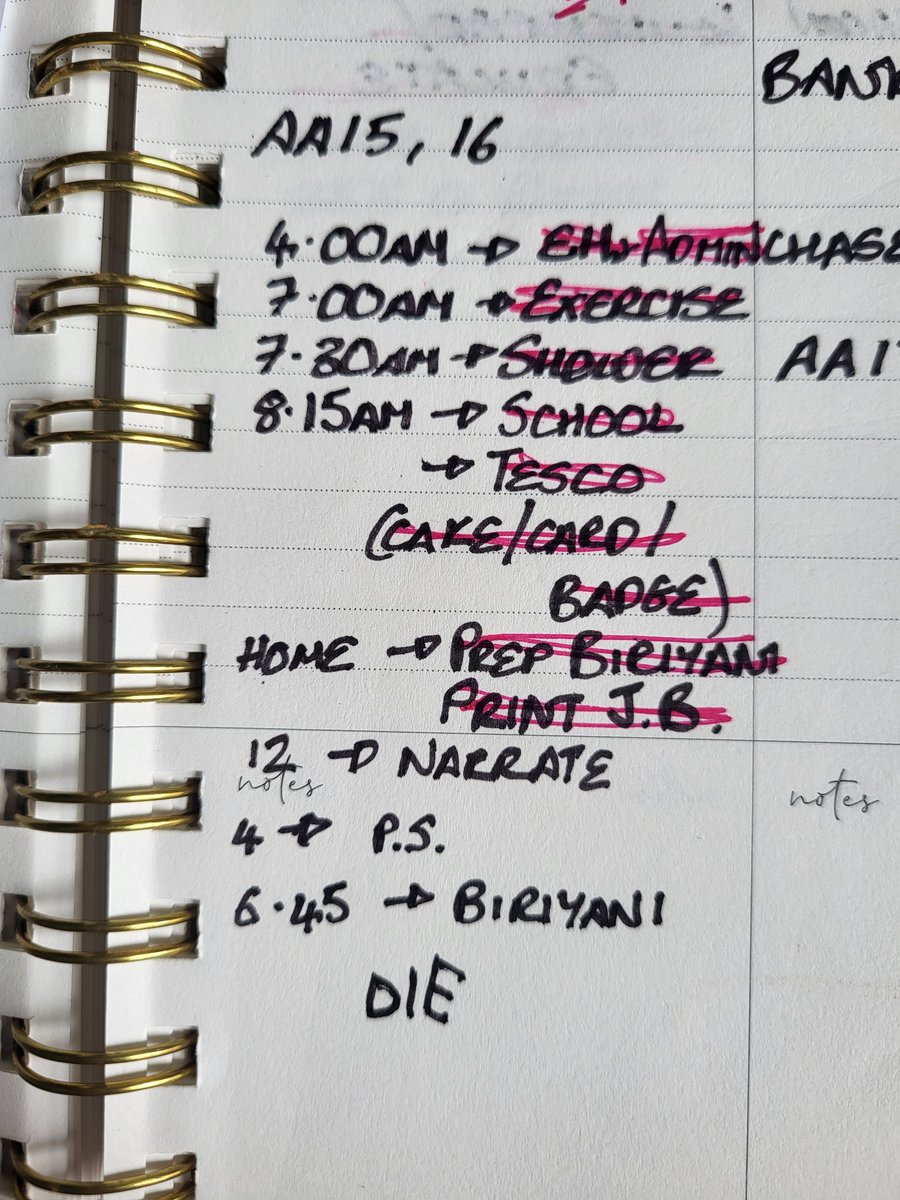 BANK
AA15, 16
4.00AM → EH, ADMIN CHASE
7.00AM → EXERCISE
7.30AM → SHOWER AA17
8.15AM → SCHOOL
→ TESCO
(CAKE/CARD/
BADGE)
HOME → PREP BIRIYANI
PRINT J.B.
12 → NARRATE
notes notes
4 → P.S.
6.45 → BIRIYANI
DIE